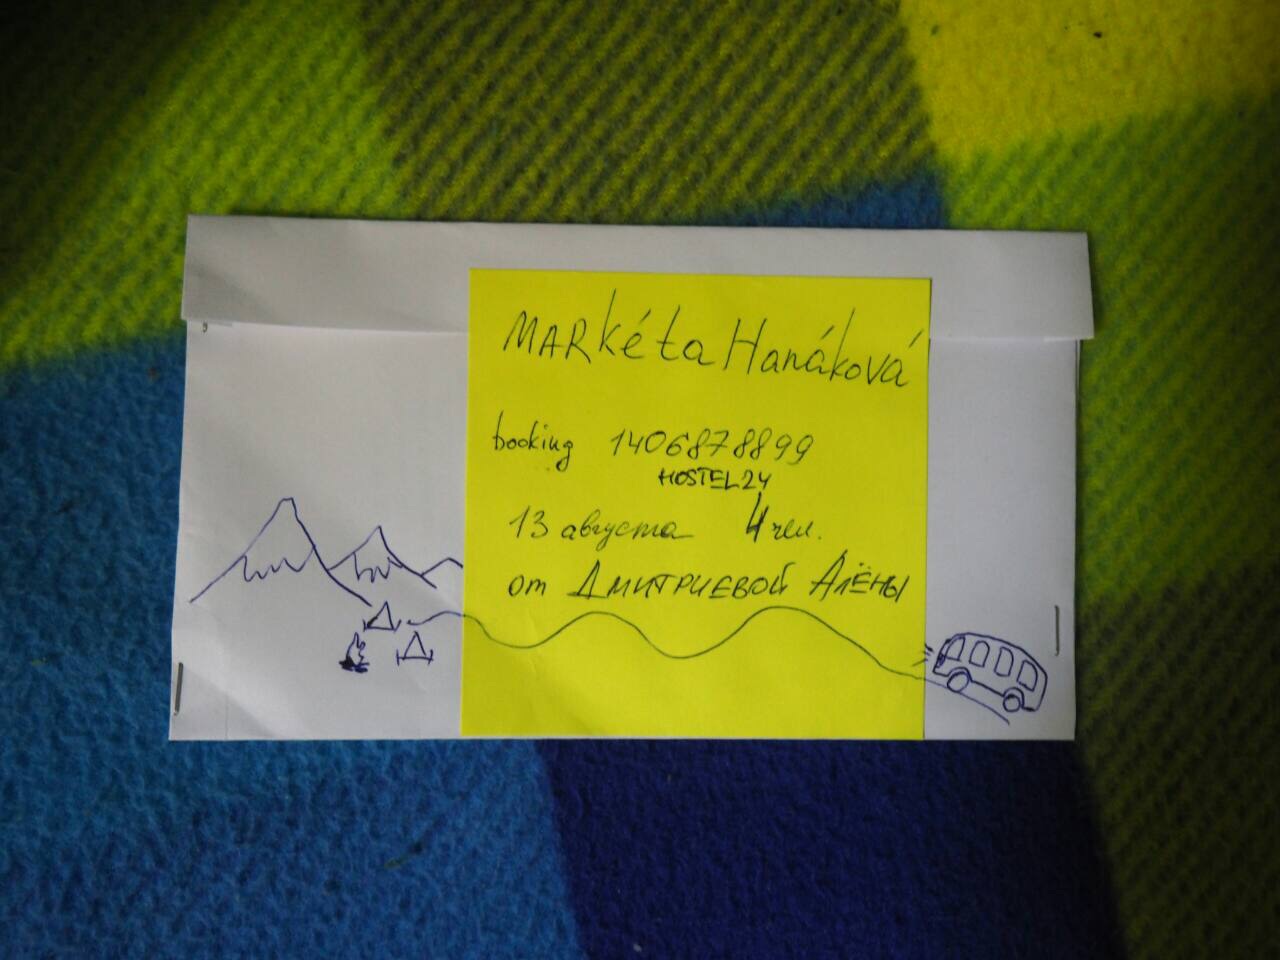 MARkéta Hanáková
booking 1406878899
HOSTEL24
13 августа 4 чел.
от ДМИТРИЕВОЙ АЛЁНЫ